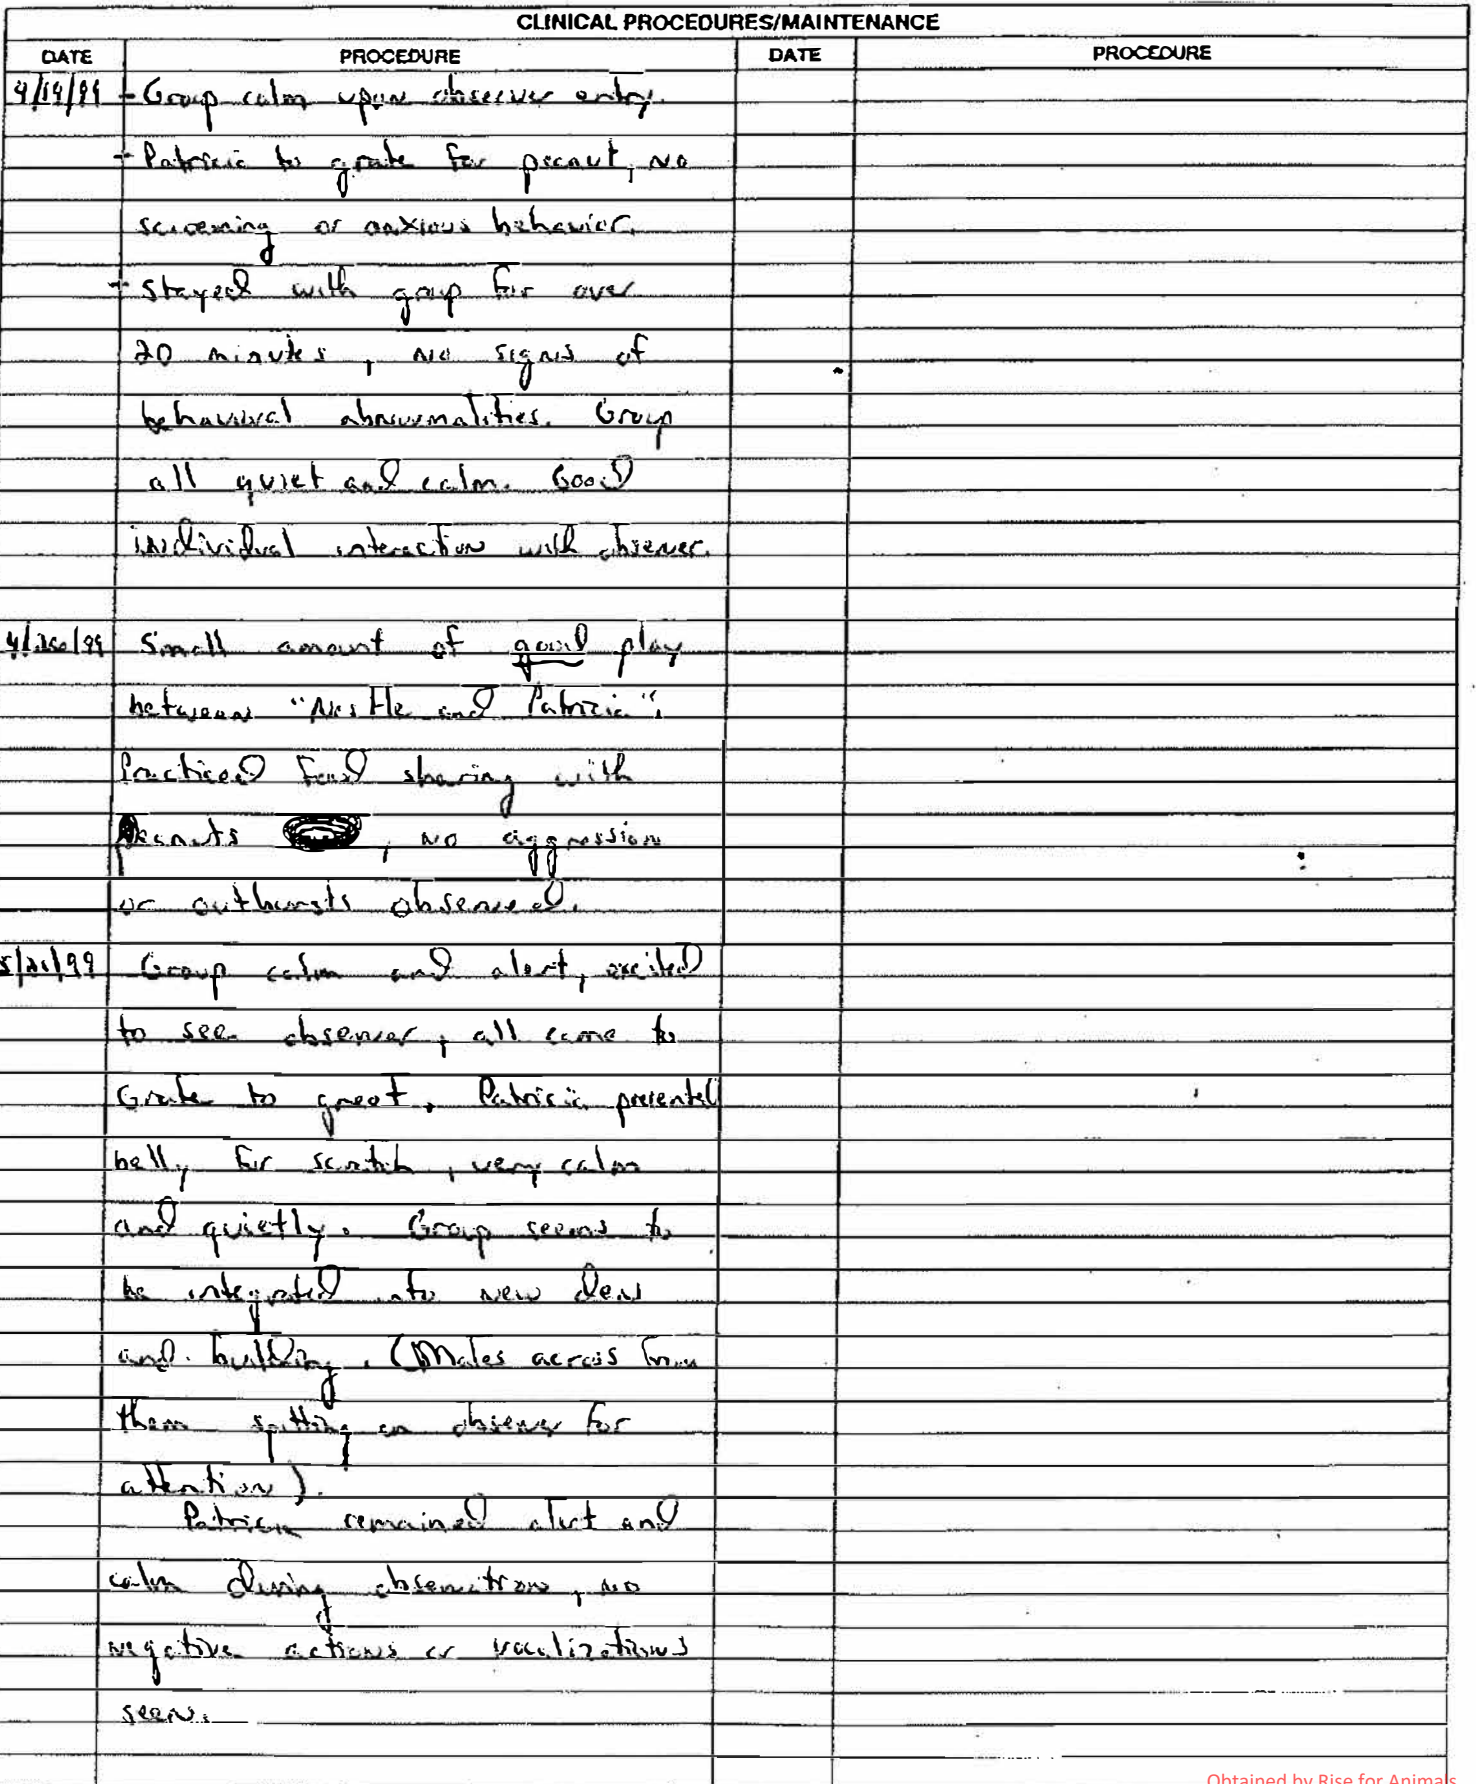 CLINICAL PROCEDURES/MAINTENANCE
DATE PROCEDURE DATE PROCEDURE
4/19/99 - Group calm upon observer entry.
- Patricia to grate for peanut, no
screaming or anxious behavior.
- Stayed with group for over
20 minutes, no signs of
behavioral abnormalities. Group
all quiet and calm. Good
individual interaction with observer.
Small amount of good play
between "Nestle and Patricia".
Practiced food sharing with
Peanuts , no aggression
or outbursts observed.
5/21/99 Group calm and alert, excited
to see observer, all came to
Grate to greet. Patricia presented
belly for scratch, very calm
and quietly. Group seems to
be integrated into new den
and building. (Males across from
them spitting on observer for
attention).
Patricia remained alert and
calm during observation, no
negative actions or vocalizations
seen.
Obtained by Rise for Animals